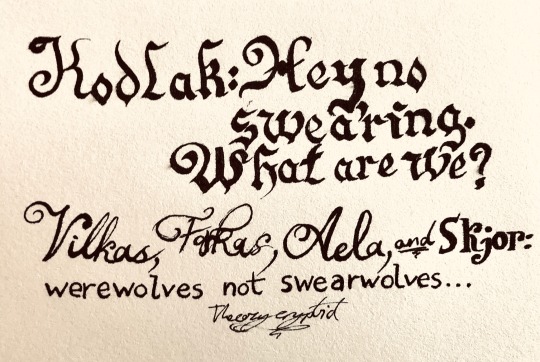 Kodlak: Hey no
swearing.
What are we?
Vilkas, Farkas, Aela, and Skjor:
werewolves not swearwolves...
Theory cryptid